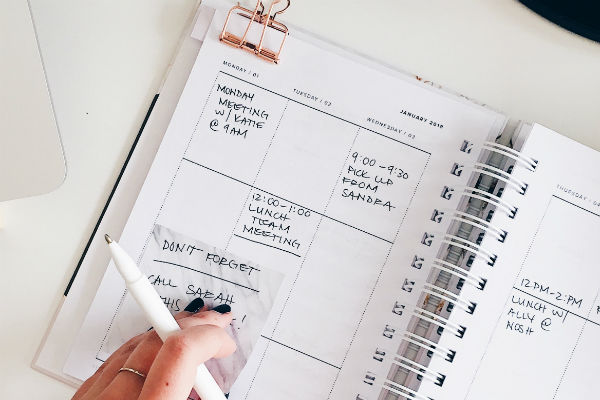 JANUARY 2018
MONDAY | 01
TUESDAY | 02
WEDNESDAY | 03
THURSDAY | 04
MONDAY
MEETING
W/ KATIE
@ 9AM
12:00-1:00
LUNCH
TEAM
MEETING
9:00-9:30
PICK UP
FROM
SANDRA
12PM-2PM
LUNCH W/
ALLY @
NOSH
DON'T FORGET
CALL SARAH
THIS
!